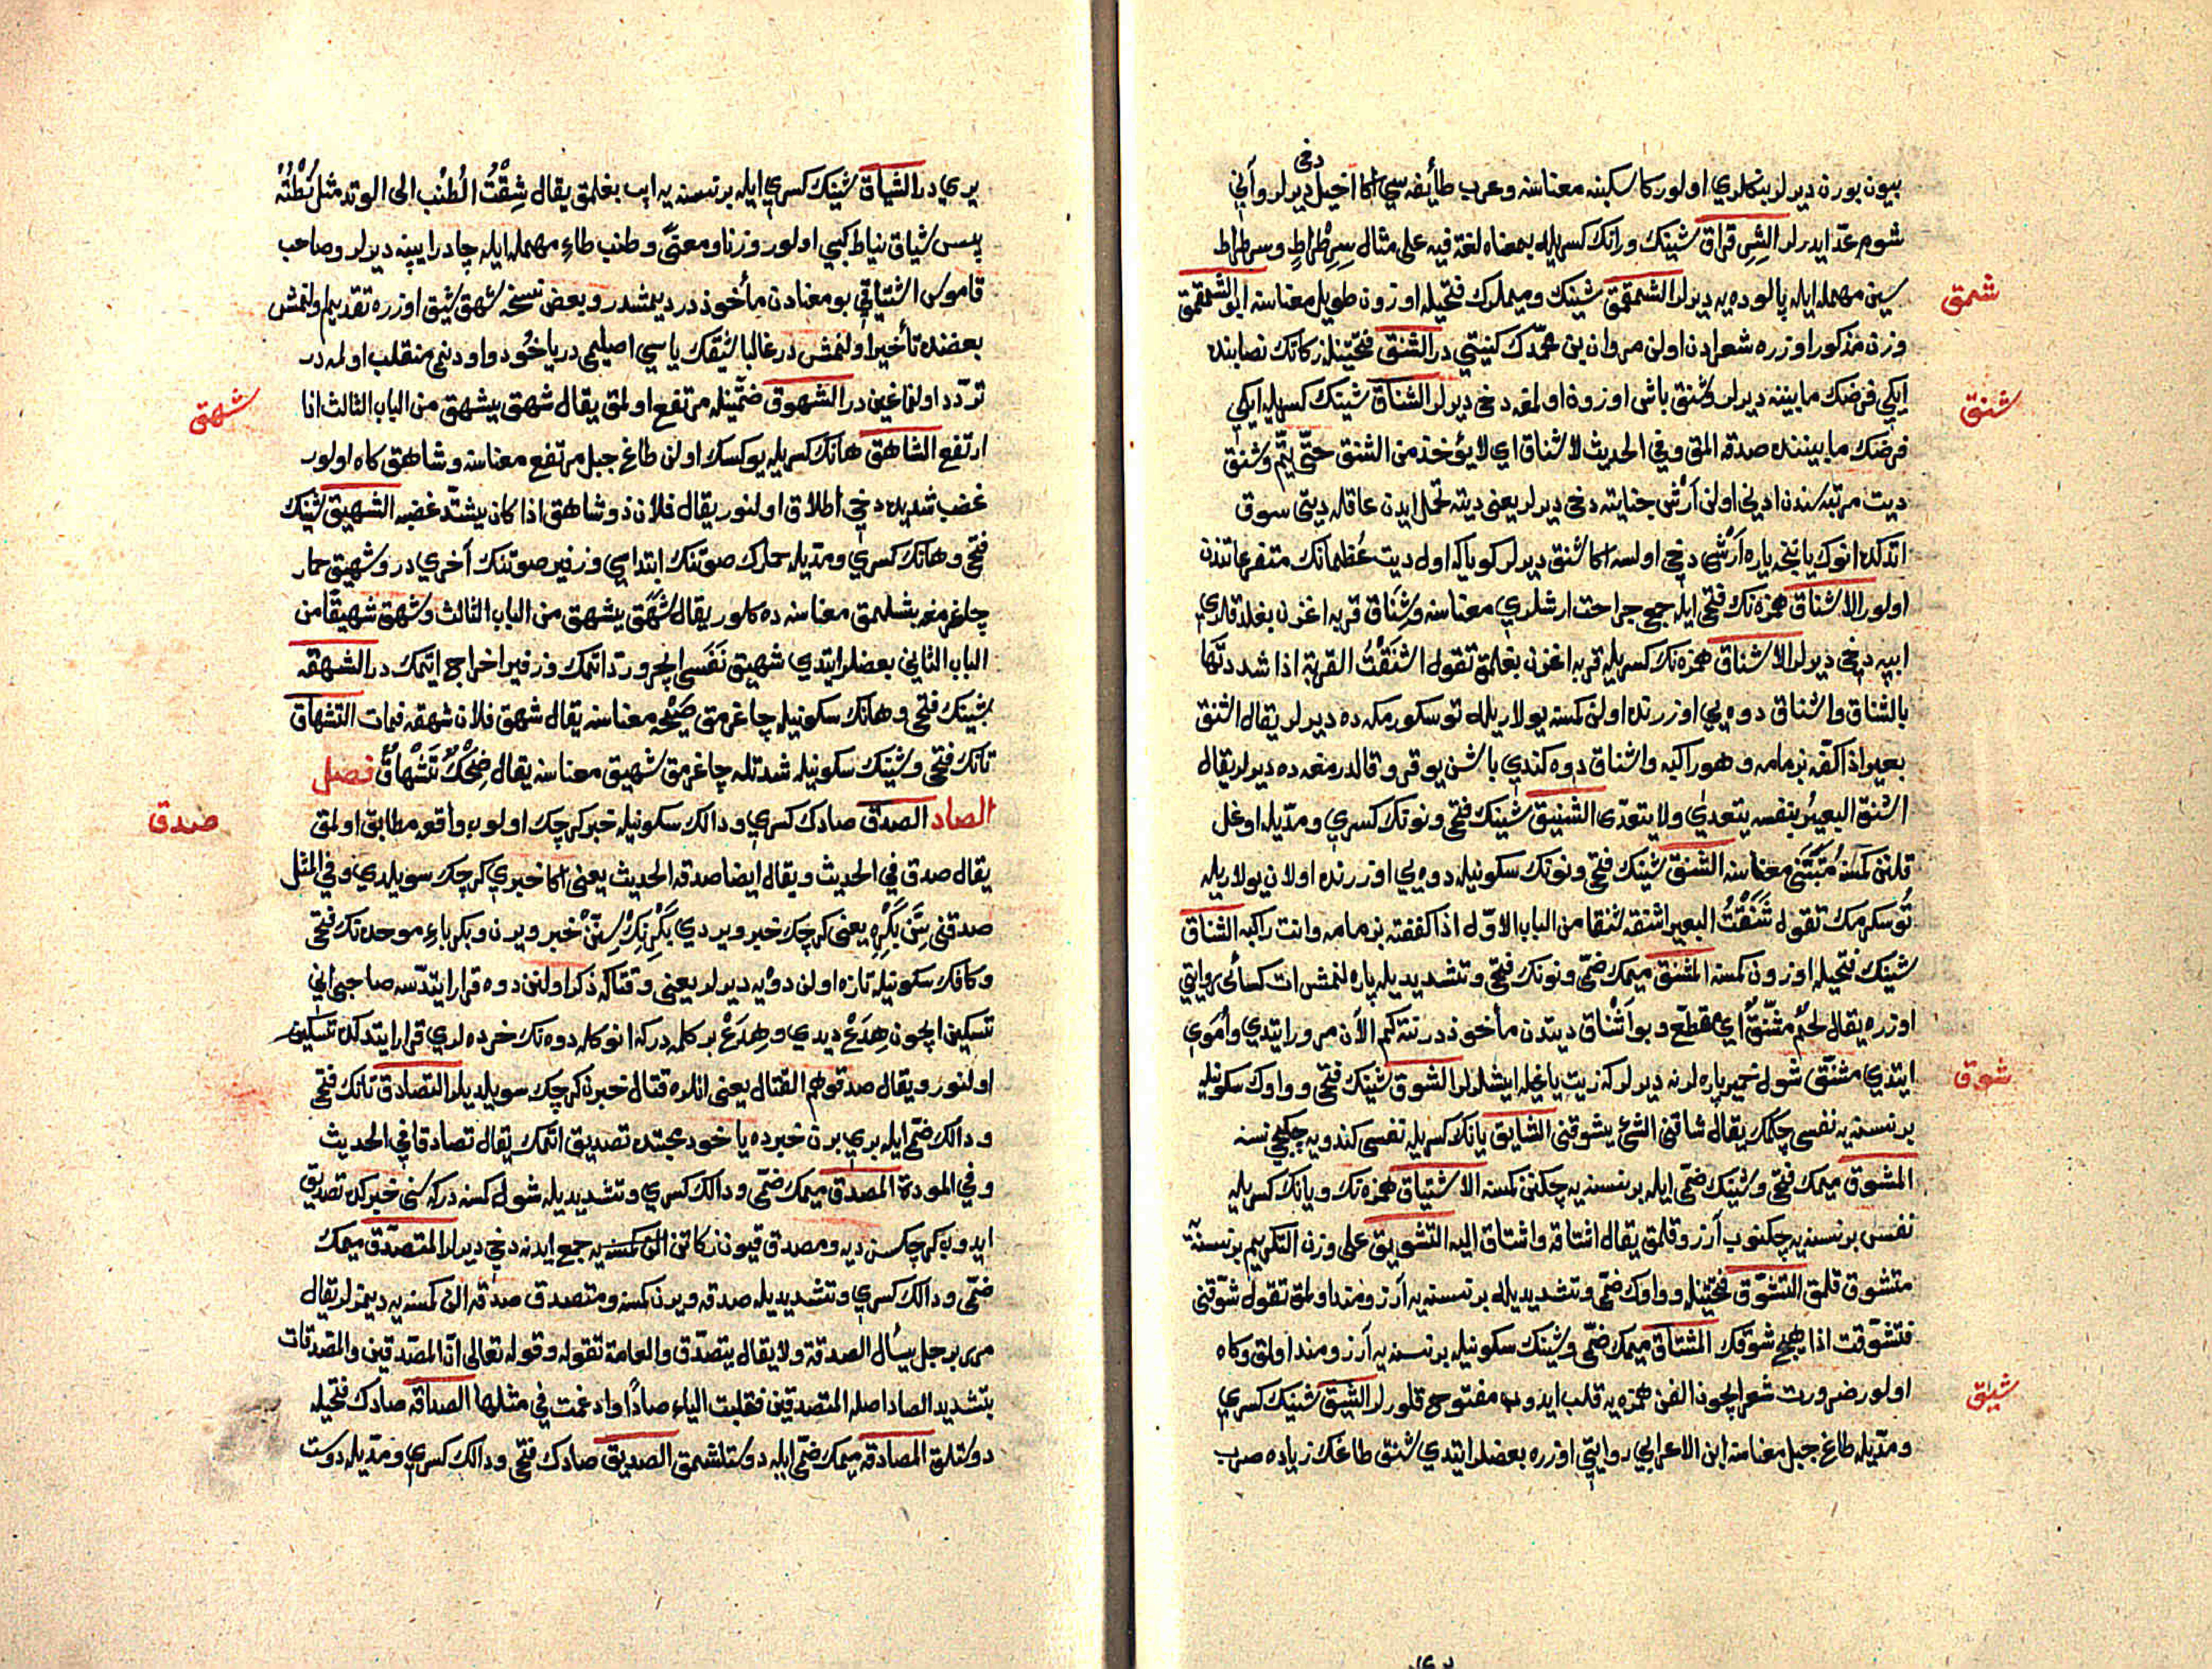 دخی
بیون بورن دیرلر بنكلری اولور كا سكینه معناسنه وعرب طائفه سی اكا اخیل دیرلر وآنی
شوم عدّ ایدرلر الشِرِقراق شینك ورانك كسریله بمعناه لغة فیه علی مثال سِرِطْراطٍ وسرطراط
سین مهمله ایله پالوده یه دیرلر الشمقمق شینك ومیملرك فتحیله اوزون طویل معناسنه ابو الشمقمق
شمق
وزن مذكور اوزره شعرادن اولن مروان بن محمّدك كنیتی در الشنق فتحتینله زكاتك نصابنده
ایكی فرضك مابیننه دیرلر وشنق باش اوزره اولمغه دخی دیرلر الشناق شینك كسریله ایكی
شنق
فرضك مابیننده صدقه المق وفی الحدیث لا شناق ای لا یؤخذ من الشنق حتّی یتمّ وشنق
دیت مرتبه سندن ادنی اولن اَرْش جنایته دخی دیرلر یعنی دیته تحمل ایدن عاقله دیتی سوق
اتدكده انوك یاننجه یاره اَرْشی دخی اولسه اكا شنق دیرلر كویاكه اول دیت عُظمانك متفرعاتندن
اولور الاشناق همزه نك فتحی ایله جمع جراحت ارشلری معناسنه وشناق قربه اغزن بغلدقلری
ایپه دخی دیرلر الاشناق همزه نك كسریله قربه اغزن بغلمق تقول اشنقْتُ القربة اذا شددتّها
بالشناق واشناق دوه یی اوزرنده اولن كمسنه یولاریله توسكورمكه ده دیرلر یقال اشنق
بعیره اذا كفّه بزمامه وهو راكبه واشناق دوه كندی باشن یوقرو قالدرمغه ده دیرلر یقال
اشنق البعیرُ بنفسه یتعدی ولا یتعدّی الشنیق شینك فتحی ونونك كسری ومدّیله اوغل
قلنن كمسنه مُتَبَنَّی معناسنه الشنق شینك فتحی ونونك سكونیله دوه یی اوزرنده اولان یولاریله
تُوسكرمك تقول شَنَقْتُ البعیر اشنقه شنقا من الباب الاوّل اذا كففته بزمامه وانت راكبه الشناق
شینك فتحیله اوزون كمسنه المشنق میمك ضمّی ونونك فتحی وتشدیدیله پاره لنمش ات كسائی روایتی
اوزره یقال لحمٌ مشنّقٌ ای مقطّع وبو اَشْناق دیتدن مأخوذدر نته كم الآن مرور ایتدی واُمَوی
ایتدی مشنّق شول خمیر پاره لرنه دیرلر كه زیت یاغیله ایشلرلر الشوق شینك فتحی وواوك سكونیله
شوق
برنسنه یه نفسی چكمك یقال شاقنی الشئ یشوقنی الشایق یانك كسریله نفسی كندویه چكیجی نسنه
المشوق میمك فتحی وشینك ضمّی ایله برنسنه یه چكنن كمسنه الاشتیاق همزه نك ویانك كسریله
نفس برنسنه یه چكنوب آرزو قلمق یقال اشتاقه واشتاق الیه التشویق علی وزن التكریم برنسنه یه
متشوق قلمق التشوّق فتحتینله وواوك ضمّی وتشدیدیله برنسنه یه آرزومند اولمق تقول شوّقنی
فتشوّقت اذا هیّج شوقك المشتاق میمك ضمّی وشینك سكونیله برنسنه یه آرزومند اولمق وكاه
اولور ضرورت شعر ایچون الفن همزه یه قلب ایدوب مفتوح قلورلر الشیق شینك كسری
شیق
ومدّیله طاغ جبل معناسنه ابن الاعرابی روایتی اوزره بعضلر ایتدی شیق طاغك زیاده صرب
یری در الشیاق شینك كسری ایله برنسنه یه ایپ بغلمق یقال شِقْتُ الطُنْب الی الوتد مثل نُطْتُهُ
پس شیاق نیاط كبی اولور وزنا ومعنیً وطنب طاءِ مهمله ایله چادر ایپنه دیرلر وصاحب
قاموس اشتیاقی بو معنادن مأخوذدر دیمشدر وبعض نسخه شهق شیق اوزره تقدیم اولنمش
بعضنده تأخیر اولنمش در غالبا شیقك یاسی اصلیمی در یاخود واودنمی منقلب اولمه در
تردّد اولنه غین در الشهوق ضمّتینله مرتفع اولمق یقال شهق یشهق من الباب الثالث اذا
شهق
ارتفع الشاهق هانك كسریله یوكسك اولن طاغ جبل مرتفع معناسنه وشاهق كاه اولور
غضب شدیده دخی اطلاق اولنور یقال فلان ذو شاهق اذا كان یشتدّ غضبه الشهیق شینك
فتحی وهانك كسری ومدّیله حمارك صوتنك ابتداسی وزفیر صوتنك آخری در وشهیق حمار
چاغرمغه بشلمق معناسنه ده كلور یقال شَهَقَ یشهق من الباب الثالث وشهق شهیقًا من
الباب الثانی بعضلر ایتدی شهیق نَفَسی ایچرو ردّ اتمك وزفیر اخراج اتمك در الشهقه
شینك فتحی وهانك سكونیله چاغرمق صَیْحَه معناسنه یقال شهق فلان شهقه فمات التشهاق
تانك فتحی وشینك سكونیله شدتله چاغرمق شهیق معناسنه یقال ضِحْكٌ تَشْهاقٌ فصل
الصاد الصدق صادك كسری ودالك سكونیله خبر كرچك اولوب واقعه مطابق اولمق
صدق
یقال صدق فی الحدیث ویقال ایضا صدقه الحدیث یعنی اكا خبری كرچك سویلدی وفی المثل
صدقنی سِنَّ بَكْرِهِ یعنی كرچك خبر ویردی بَكْرِنِكْ سِنّن خبر ویرن وبكر باءِ موحده نك فتحی
وكافك سكونیله تازه اولن دوه یه دیرلر یعنی وقتاكه ذكر اولنن دوه قرار ایتدسه صاحبی انی
تسكین ایچون هِدَعْ دیدی وهِدَعْ بر كلمه دركه انوكله دوه نك خرده لری قرار ایتدكده تسكین
اولنور ویقال صدقوهم القتال یعنی انلره قتال خبرن كرچك سویلدیلر التصادق تانك فتحی
ودالك ضمّی ایله بری برن خبرده یاخود محبتده تصدیق اتمك یقال تصادقا فی الحدیث
وفی المودة المصدق میمك ضمّی ودالك كسری وتشدیدیله شول كمسنه دركه سنی خبركده تصدیق
ایدوب كرچكسن دیه ومصدق قیون زكاتن الن كمسنه یه جمع ایدنه دخی دیرلر المتصدّق میمك
ضمّی ودالك كسری وتشدیدیله صدقه ویرن كمسنه ومتصدق صدقه الن كمسنه یه دیمزلر یقال
مررت برجل یسأل الصدقة ولا یقال یتصدّق والعامة تقوله وقوله تعالی انّ المصّدقین والمصّدقات
بتشدید الصاد اصله المتصدقین فقلبت التاء صاداً وادغمت فی مثلها الصداقه صادك فتحیله
دوستلق المصادقه میمك ضمّی ایله دوستلشمق الصدیق صادك فتحی ودالك كسری ومدّیله دوست